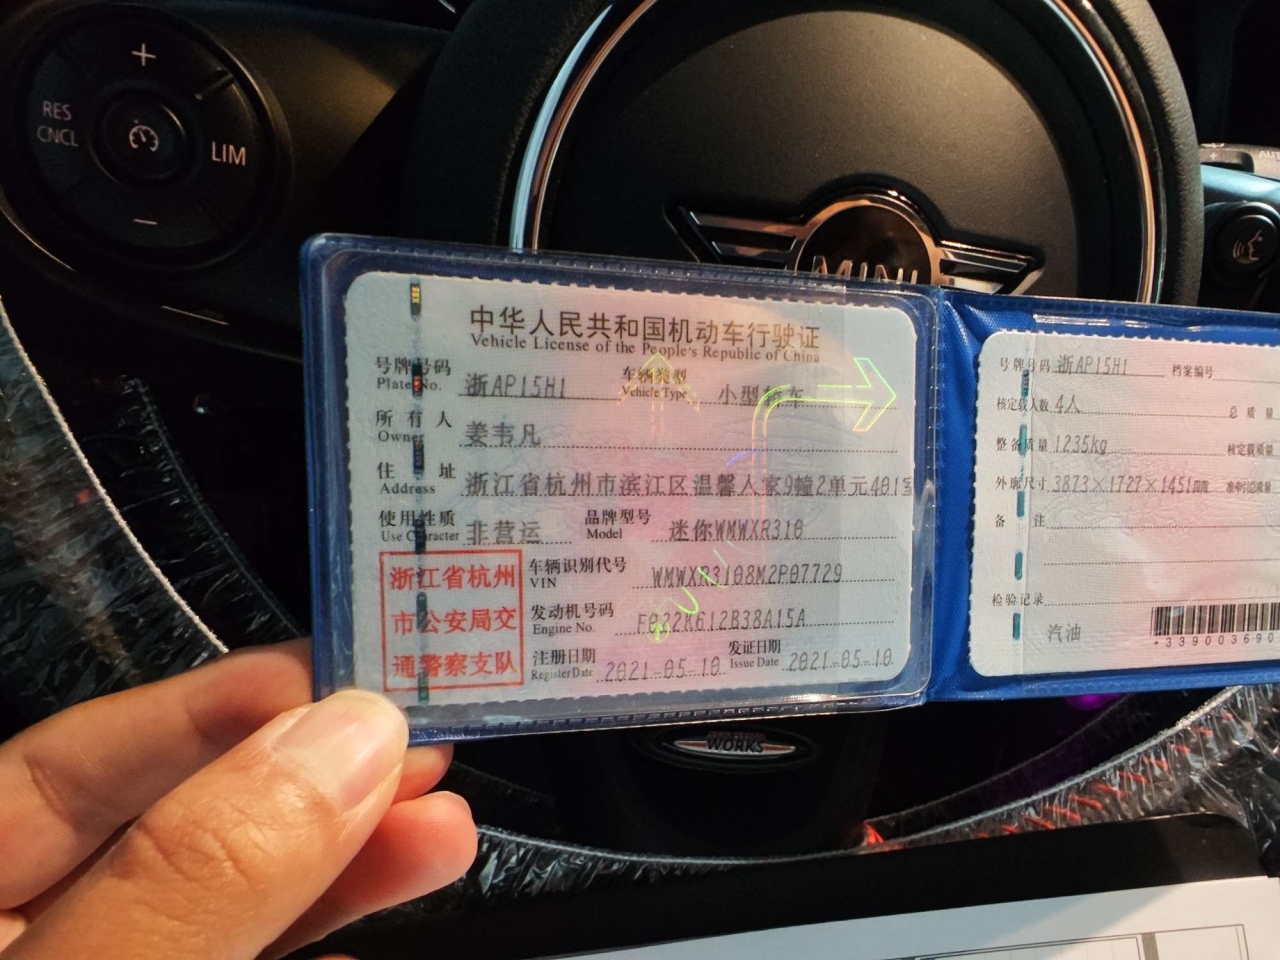 +
RES
CNCL
LIM
−
MINI
中华人民共和国机动车行驶证
Vehicle License of the People's Republic of China
号牌号码 浙AP15H1 车辆类型 小型轿车
Plate No. Vehicle Type
所有人 姜韦凡
Owner
住址 浙江省杭州市滨江区温馨人家9幢2单元401室
Address
使用性质 非营运 品牌型号 迷你WMWXR310
Use Character Model
浙江省杭州
市公安局交
通警察支队
车辆识别代号 WMWXR3108M2P07729
VIN
发动机号码
Engine No.
注册日期 2021-05-10 发证日期 2021-05-10
Register Date Issue Date
号牌号码 浙AP15H1 档案编号
核定载人数 4人 总质量
整备质量 1235kg 核定载质量
外廓尺寸 3873×1727×1451mm 准牵引总质量
备注
检验记录
汽油
WORKS